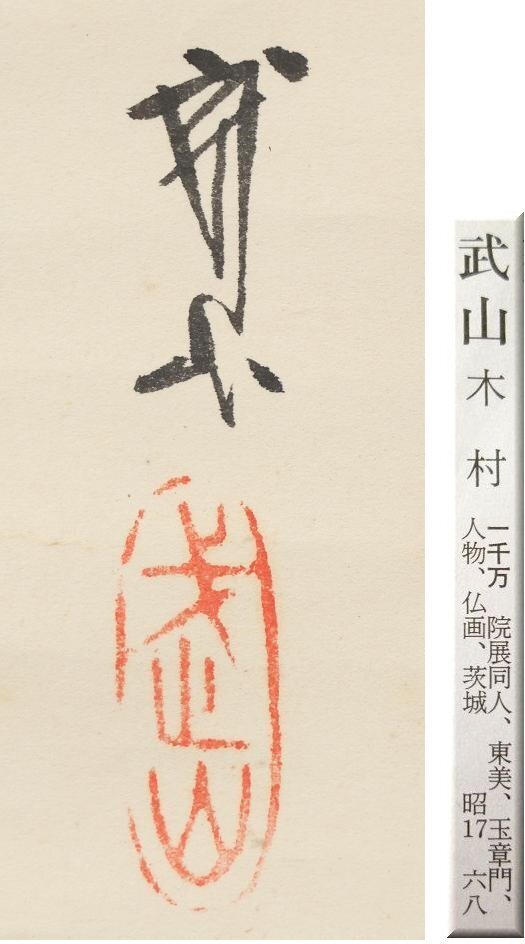 武山
武山
武山 木村
一千万 院展同人、東美、玉章門、
人物、仏画、茨城 昭17 六八